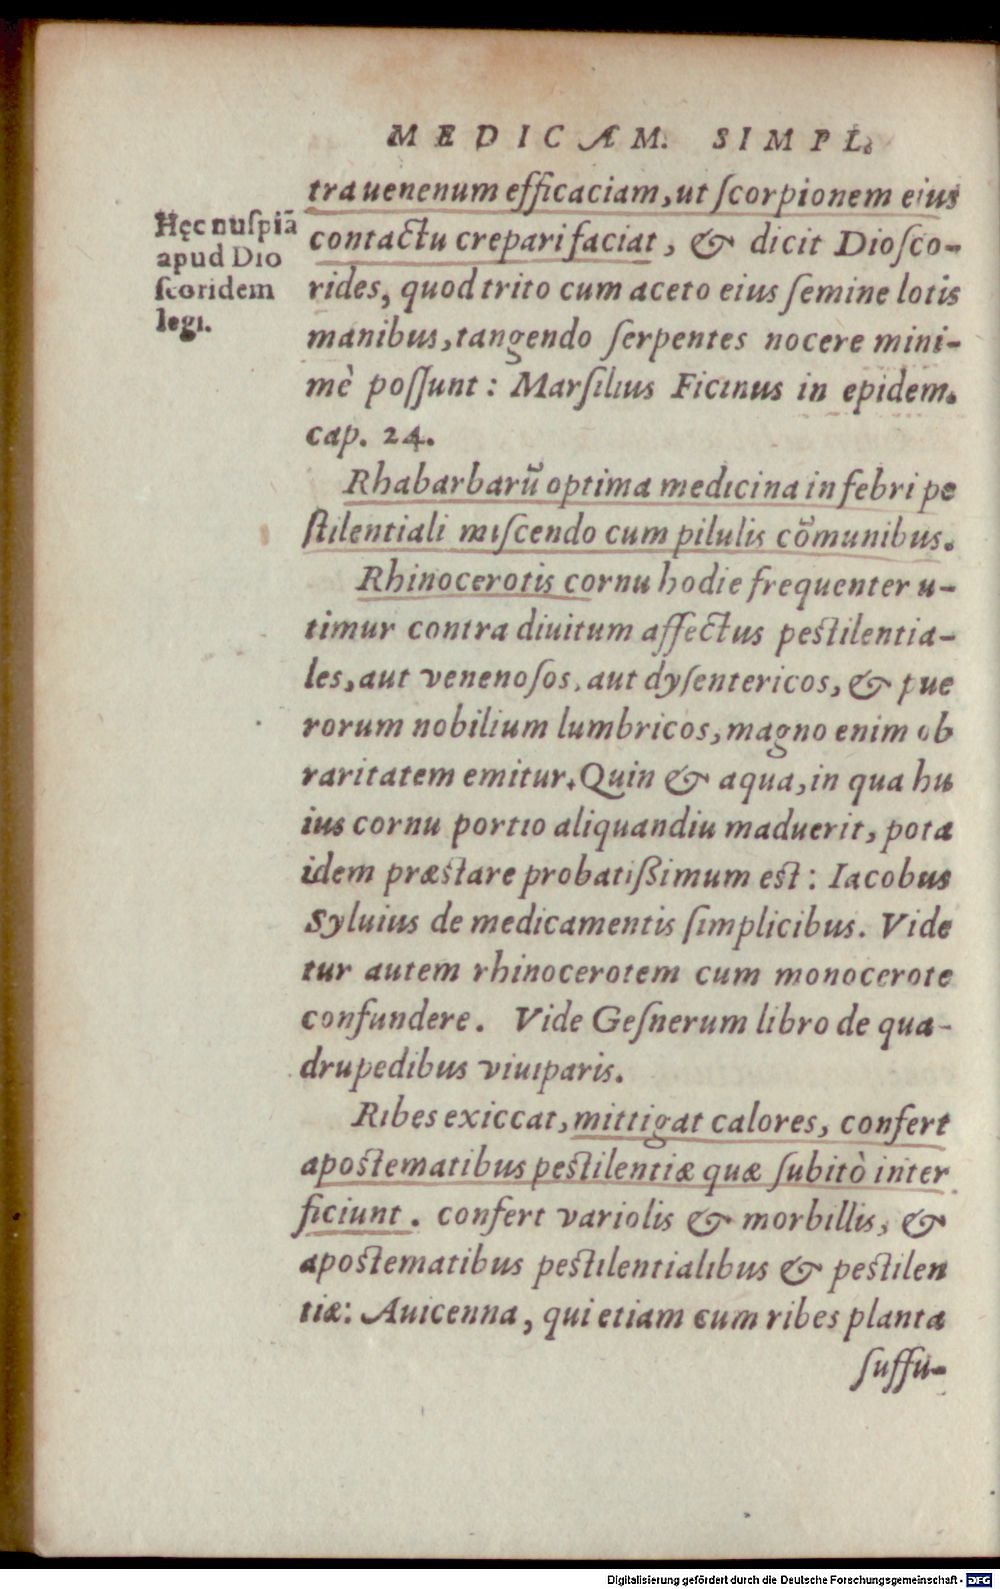 MEDICAM. SIMPL.
tra uenenum efficaciam, ut ſcorpionem eius
contactu crepari faciat, & dicit Dioſco-
rides, quod trito cum aceto eius ſemine lotis
manibus, tangendo ſerpentes nocere mini-
mè poſſunt: Marſilius Ficinus in epidem.
cap. 24.
Hęc nuſpiã
apud Dio
ſcoridem
legi.
Rhabarbarũ optima medicina in febri pe
ſtilentiali miſcendo cum pilulis cõmunibus.
Rhinocerotis cornu hodie frequenter u-
timur contra diuitum affectus peſtilentia-
les, aut venenoſos, aut dyſentericos, & pue
rorum nobilium lumbricos, magno enim ob
raritatem emitur. Quin & aqua, in qua hu
ius cornu portio aliquandiu maduerit, pota
idem præſtare probatiſsimum eſt: Iacobus
Syluius de medicamentis ſimplicibus. Vide
tur autem rhinocerotem cum monocerote
confundere. Vide Geſnerum libro de qua-
drupedibus viuiparis.
Ribes exiccat, mittigat calores, confert
apoſtematibus peſtilentiæ quæ ſubitò inter
ficiunt. confert variolis & morbillis, &
apoſtematibus peſtilentialibus & peſtilen
tiæ: Auicenna, qui etiam cum ribes planta
ſuffu-
Digitalisierung gefördert durch die Deutsche Forschungsgemeinschaft - DFG